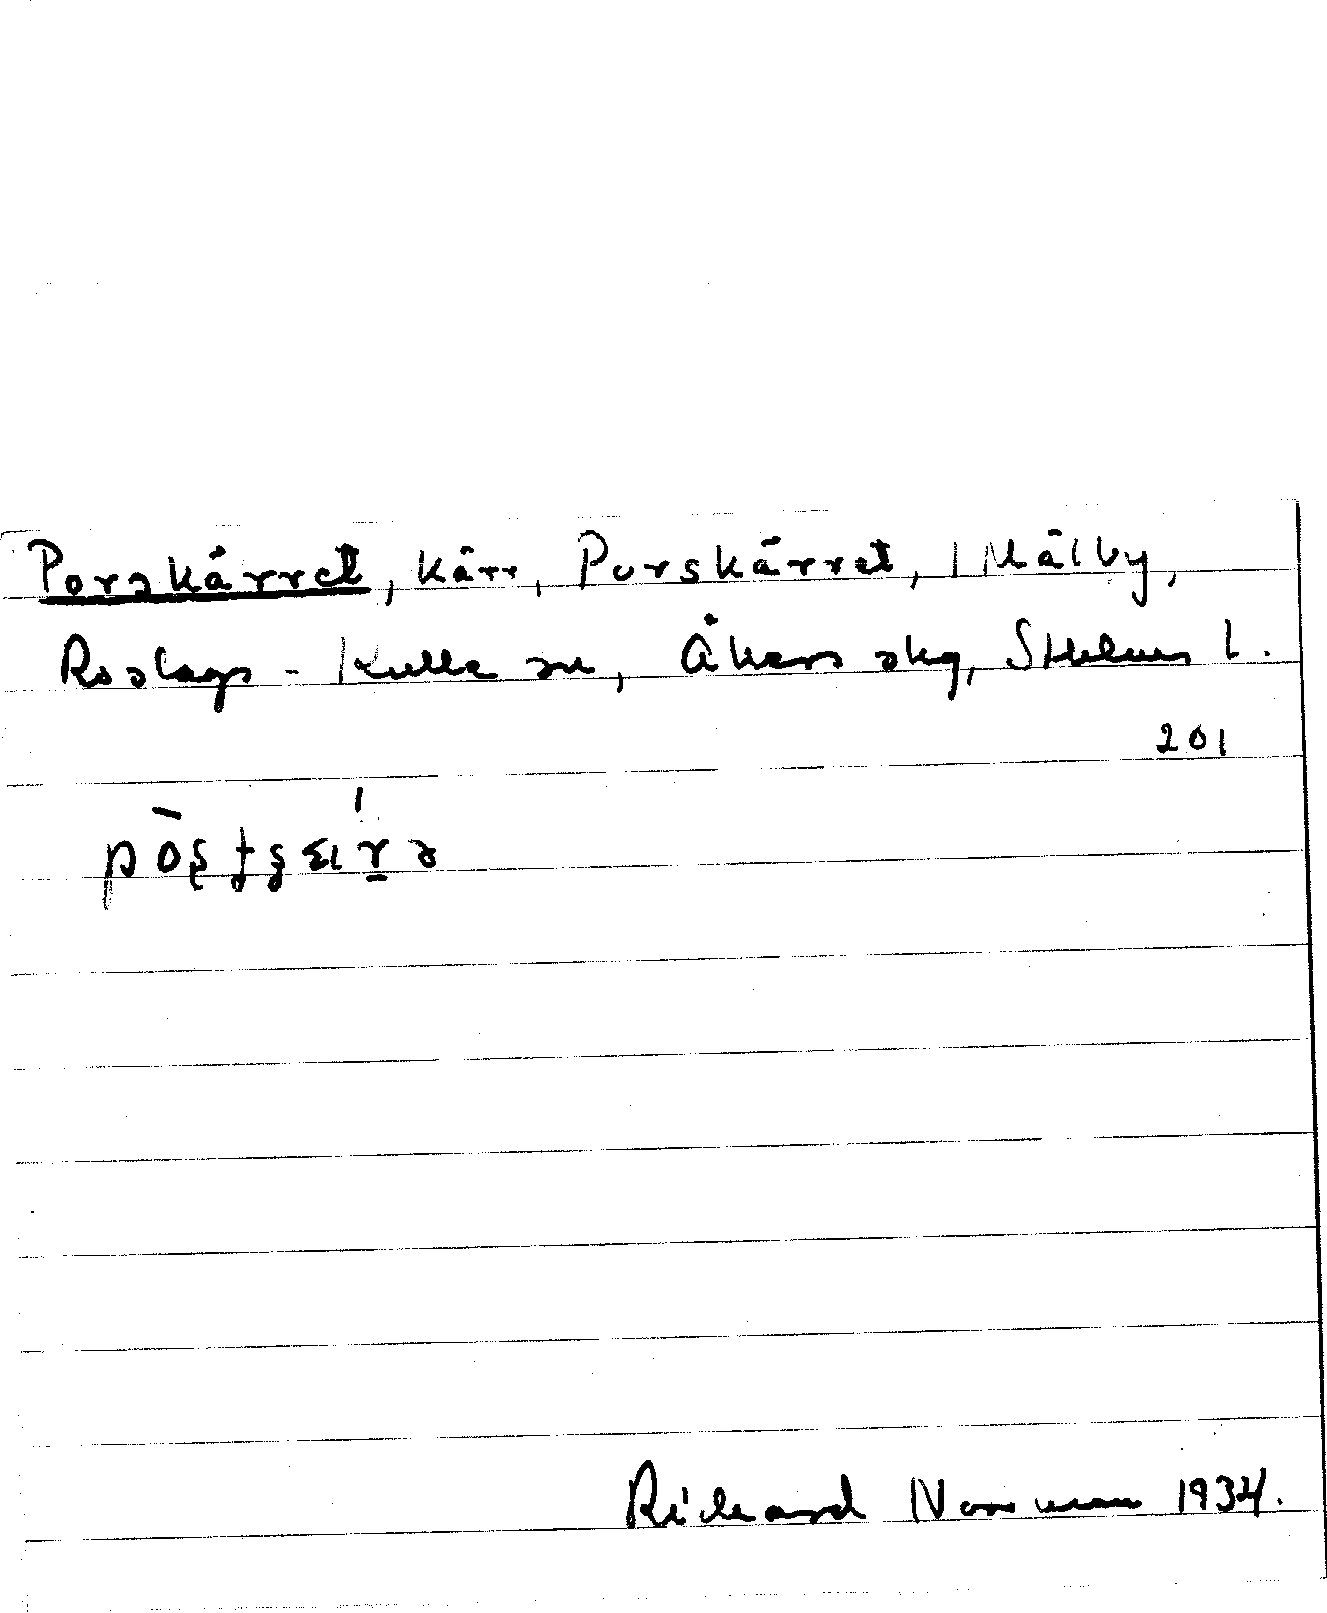 Porskärret, kärr, Porskärret, i Mälby,
Roslags-Kulla sn, Åkers skg, Sthlms l.
201
Richard Norrman 1934.